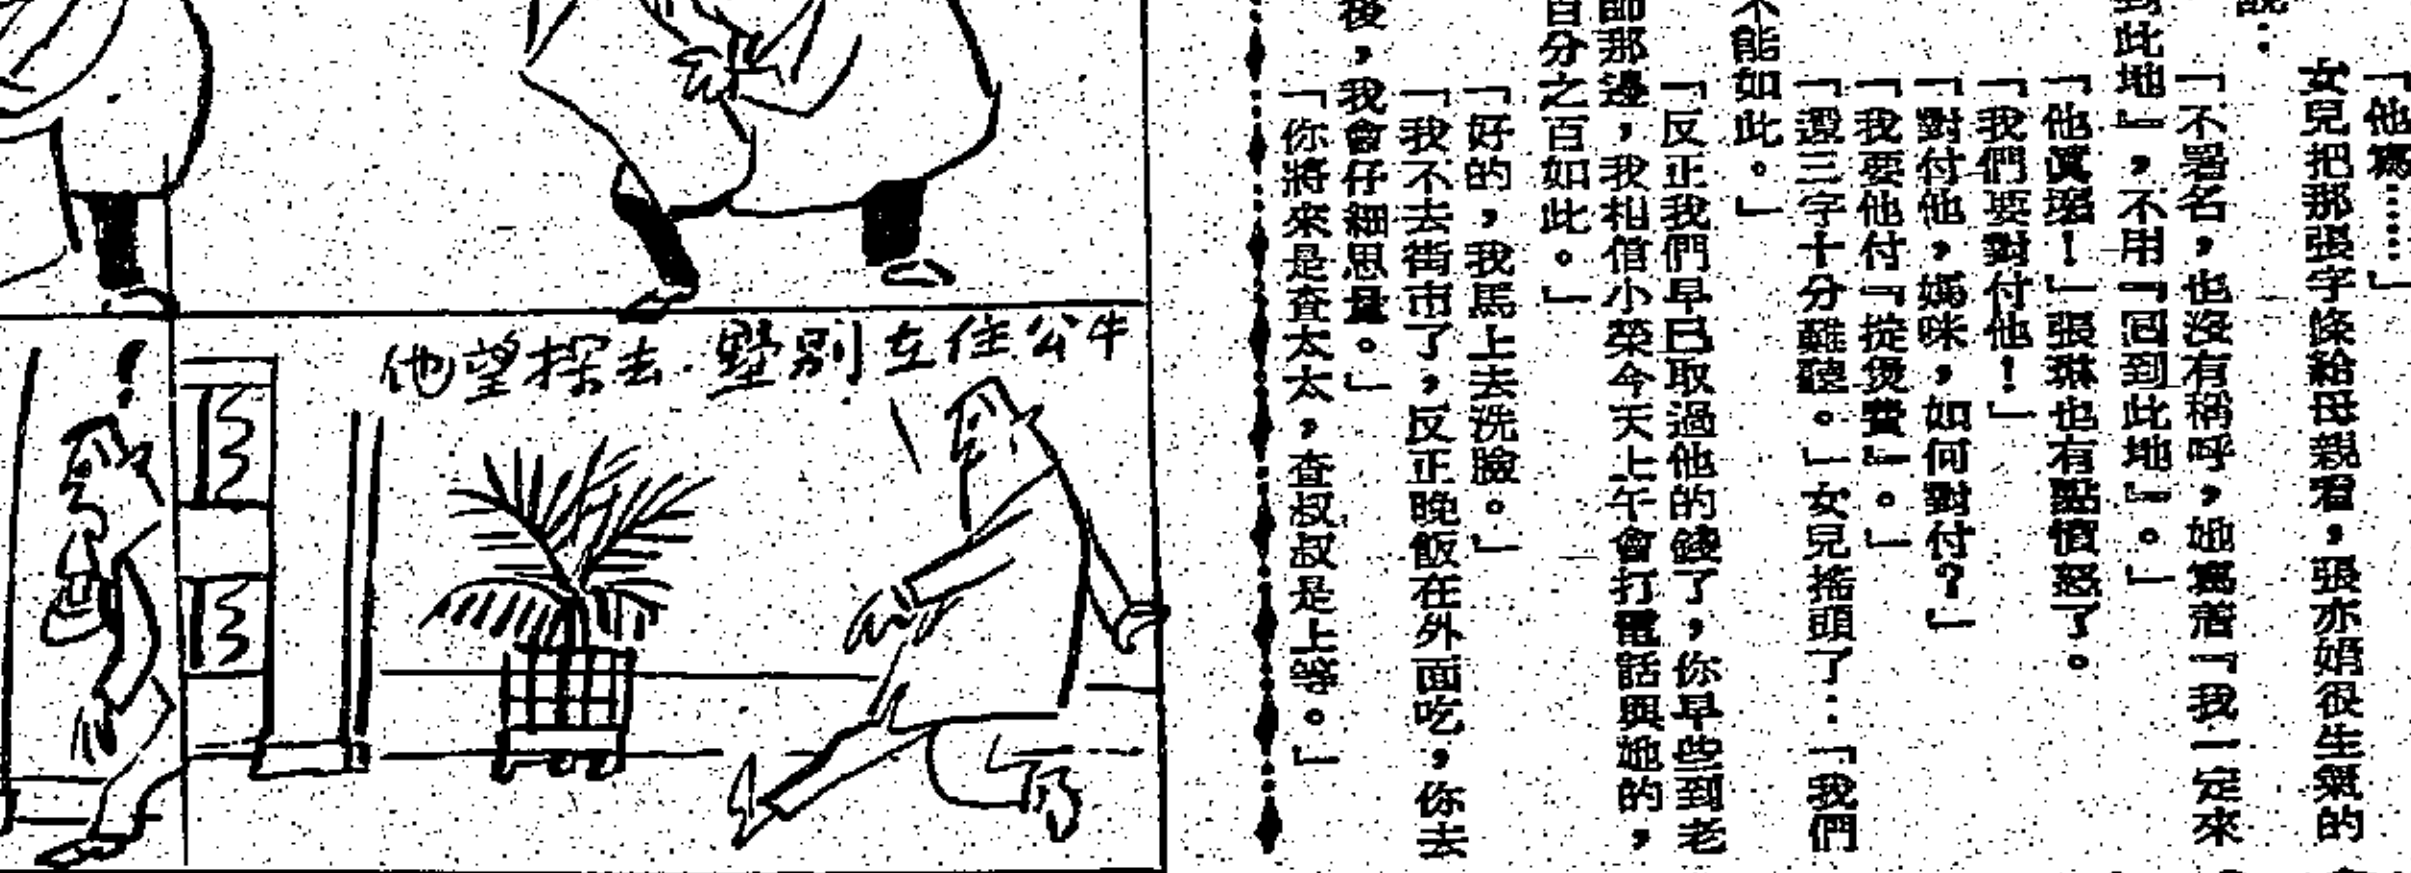 「他寫……」
女兒把那張字條給母親看，張亦娟很生氣的
說：
「不署名，也沒有稱呼，她寫着『我一定來
到此地』，不用『回到此地』。」
「他眞壞！」張琳也有點憤怒了。
「我們要對付他！」
「對付他，媽咪，如何對付？」
「我要他付『掟煲費』。」
「這三字十分難聽。」女兒搖頭了：「我們
不能如此。」
「反正我們早已取過他的錢了，你早些到老
師那邊，我相信小榮今天上午會打電話與她的，
百分之百如此。」
「好的，我馬上去洗臉。」
「我不去街市了，反正晚飯在外面吃，你去
後，我會仔細思量。」
「你將來是查太太，查叔叔是上等。」
牛公住在別墅 去探望他
！